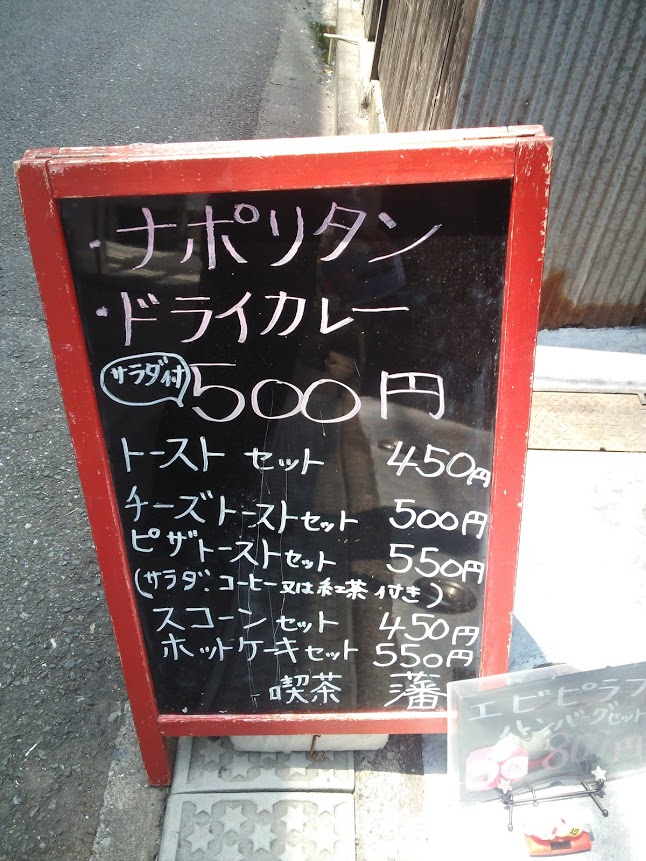 ・ナポリタン
・ドライカレー
サラダ付 500円
トースト セット 450円
チーズトーストセット 500円
ピザトーストセット 550円
(サラダ、コーヒー又は紅茶付き)
スコーンセット 450円
ホットケーキセット 550円
喫茶 藩
エビピラフ
ハンバーグセット